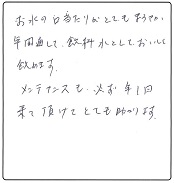 お水の口当たりがとてもまろやか、
年間通して、飲料水として、おいしく
飲めます。
メンテナンスも、必ず年1回
来て頂けてとても助かります。